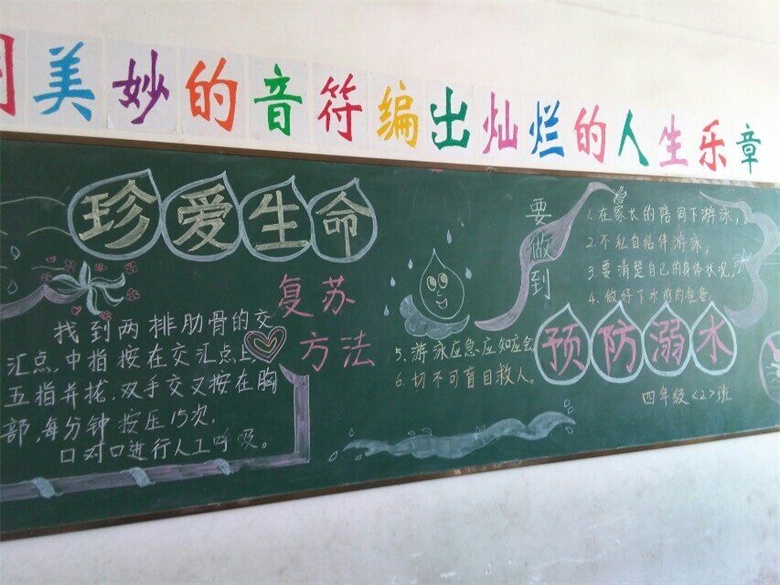 用美妙的音符编出灿烂的人生乐章
珍爱生命
复苏
方法
找到两排肋骨的交
汇点,中指按在交汇点上
五指并拢,双手交叉按在胸
部,每分钟按压15次.
口对口进行人工呼吸。
要做到
1.在家长的陪同下游泳,
2.不私自结伴游泳,
3.要清楚自己的身体状况,
4.做好下水前的准备
5.游泳应急应知应会
6.切不可盲目救人。
预防溺水
四年级<2>班